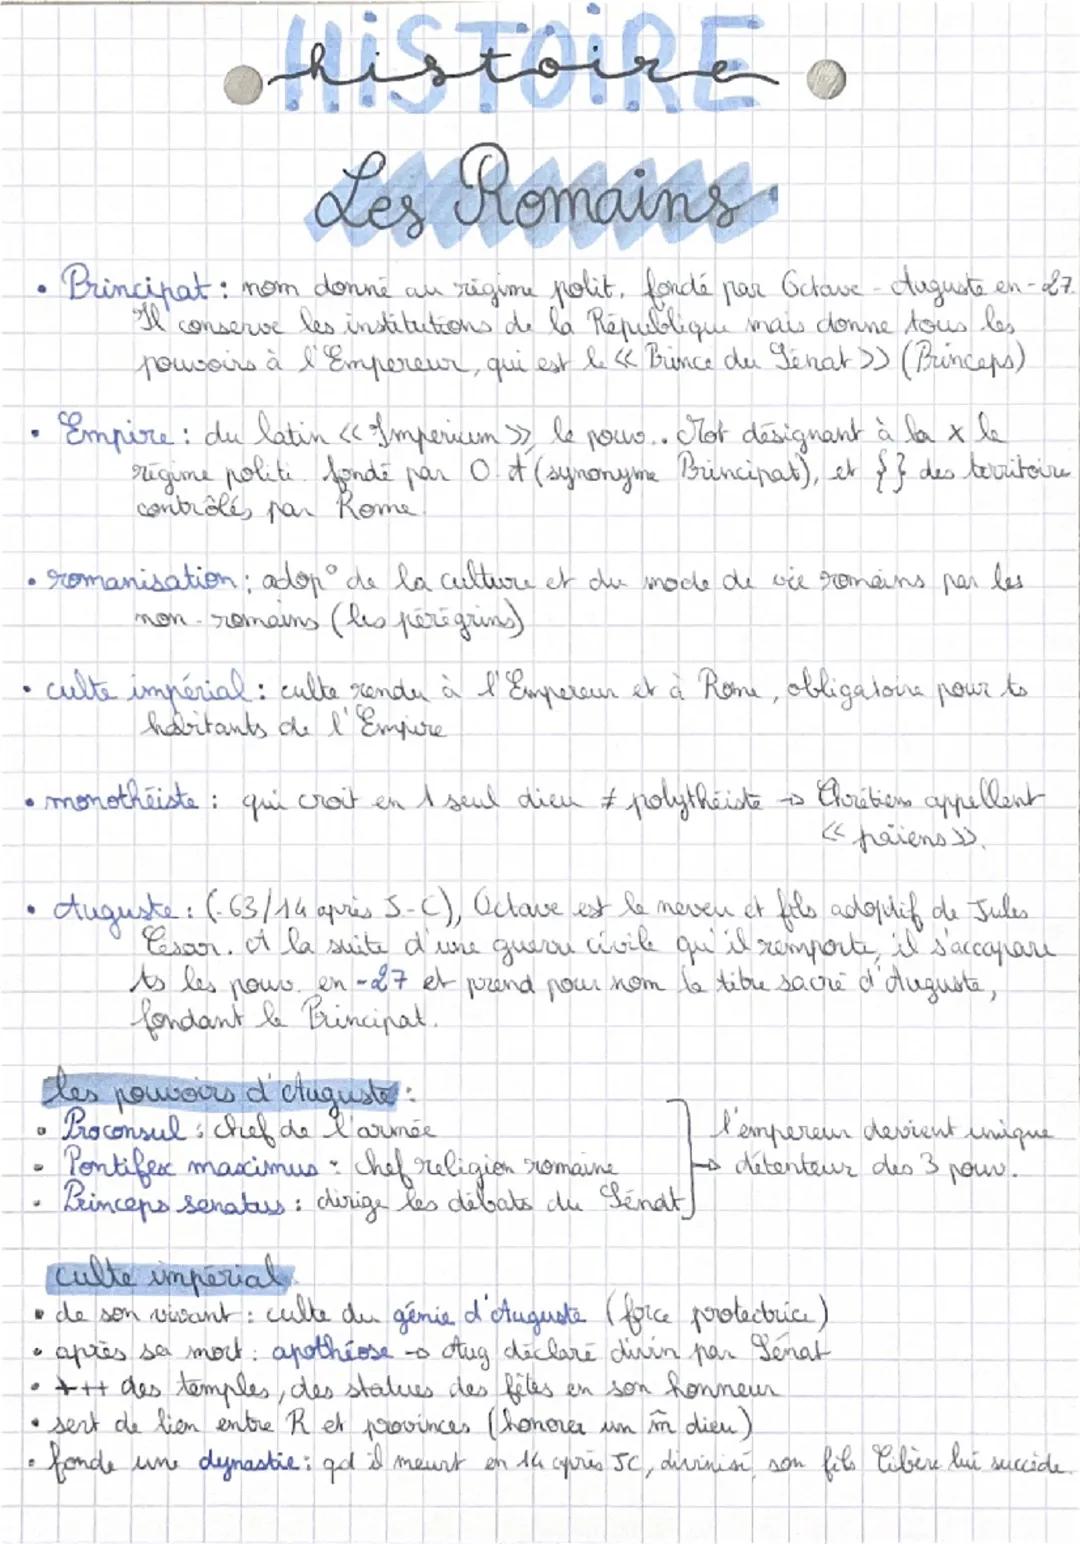 HISTOIRE
histoire
Les Romains
• Principat : nom donné au régime polit. fondé par Octave-Auguste en -27.
Il conserve les institutions de la République mais donne tous les
pouvoirs à l'Empereur, qui est le << Prince du Sénat >> (Princeps)
• Empire : du latin << Imperium >>, le pouv.. Mot désignant à la x le
régime politi. fondé par O.A (synonyme Principat), et { } des territoire
contrôlés par Rome.
• romanisation : adop° de la culture et du mode de vie romains par les
non-romains (les pérégrins)
• culte impérial : culte rendu à l'Empereur et à Rome, obligatoire pour ts
habitants de l'Empire
• monothéiste : qui croit en 1 seul dieu ≠ polythéiste → Chrétiens appellent
<< païens >>.
• Auguste : (-63/14 après J-C), Octave est le neveu et fils adoptif de Jules
César. A la suite d'une guerre civile qu'il remporte, il s'accapare
ts les pouv. en -27 et prend pour nom le titre sacré d'Auguste,
fondant le Principat.
les pouvoirs d'Auguste :
• Proconsul : chef de l'armée
• Pontifex maximus : chef religion romaine
• Princeps senatus : dirige les débats du Sénat
l'empereur devient unique
→ détenteur des 3 pouv.
culte impérial
• de son vivant : culte du génie d'Auguste (force protectrice)
• après sa mort : apothéose → Aug déclaré divin par Sénat
• +++ des temples, des statues des fêtes en son honneur
• sert de lien entre R et provinces (honorer un m̂ dieu)
• fonde une dynastie : qd il meurt en 14 après JC, divinisé, son fils Tibère lui succède.